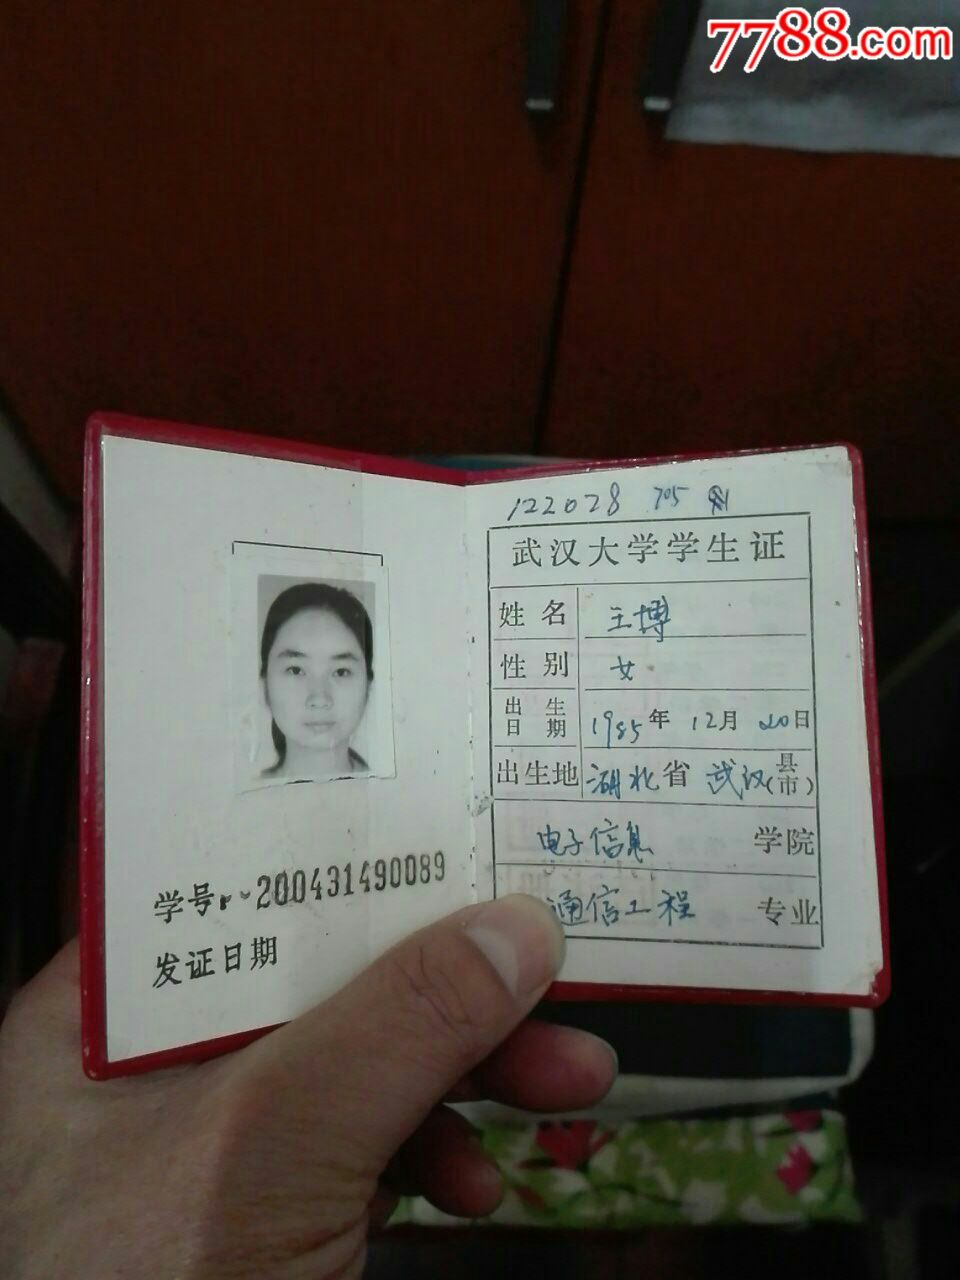 7788.com
学号 200431490089
发证日期
122028 705
武汉大学学生证
姓名 王博
性别 女
出生日期 1985年12月20日
出生地 湖北省武汉(县市)
电子信息学院
通信工程专业